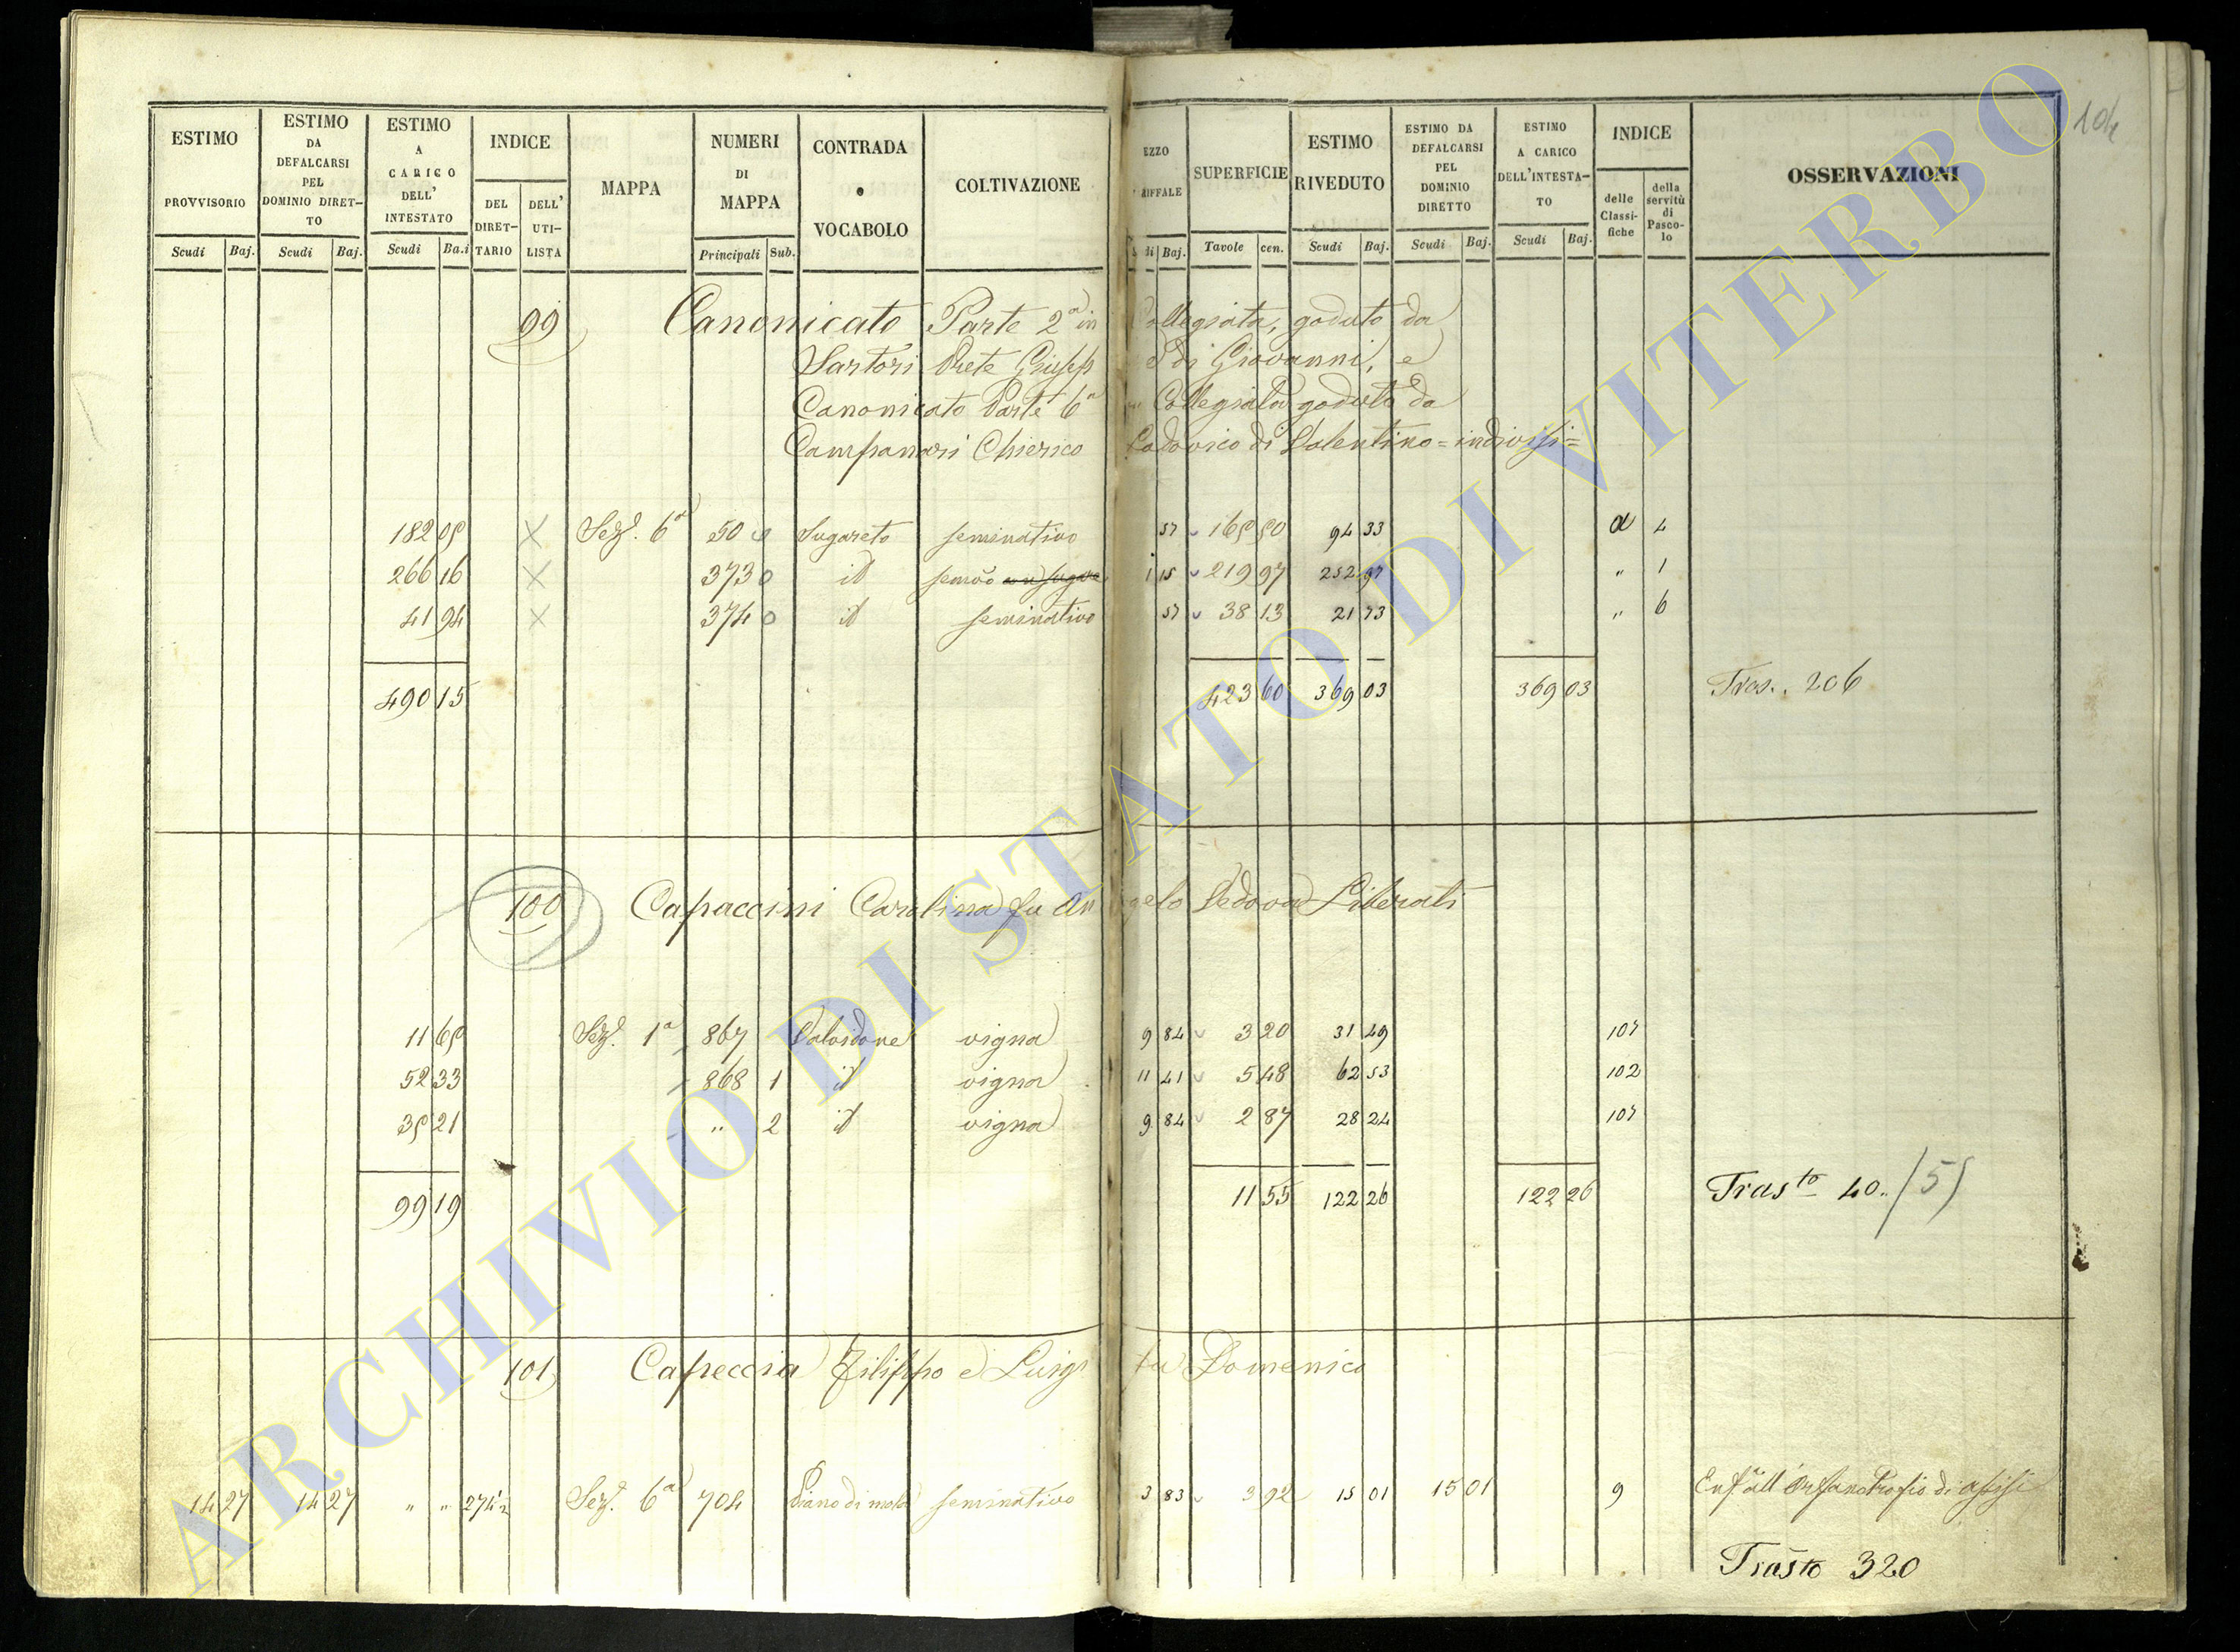 104
ESTIMO PROVVISORIO
Scudi Baj.
ESTIMO DA DEFALCARSI PEL DOMINIO DIRETTO
Scudi Baj.
ESTIMO A CARICO DELL' INTESTATO
Scudi Ba.i
INDICE
DEL DIRETTARIO
DELL' UTILISTA
MAPPA
NUMERI DI MAPPA
Principali Sub.
CONTRADA o VOCABOLO
COLTIVAZIONE
EZZO
RIFFALE
di Baj.
SUPERFICIE
Tavole cen.
ESTIMO RIVEDUTO
Scudi Baj.
ESTIMO DA DEFALCARSI PEL DOMINIO DIRETTO
Scudi Baj.
ESTIMO A CARICO DELL'INTESTATO
Scudi Baj.
INDICE
delle Classifiche
della servitù di Pascolo
OSSERVAZIONI
99 Canonicato Parte 2a in Collegiata, goduto da
Sartori Prete Giusep e di Giovanni, e
Canonicato Parte 6a Collegiata goduto da
Campanari Chierico Lodovico di Valentino = indivisi =
182 05 X Sez. 6a 50 Sugareto seminativo 57 165 50 94 33 a 4
266 16 X 373 0 id 1 15 219 97 252 97 " 1
41 94 X 374 0 id seminativo 57 38 13 21 73 " 6
490 15 423 60 369 03 369 03 Tras. 206
100 Capaccini Carolina fu Angelo Vedova Liberati
11 65 Sez. 1a 867 Valvidone vigna 9 84 3 20 31 49 107
52 33 868 1 id vigna 11 41 5 48 62 53 102
35 21 " 2 id vigna 9 84 2 87 28 24 107
99 19 11 55 122 26 122 26 Trasto 40. /55
101 Capeccia Filippo e Luigi fu Domenico
14 27 14 27 " " 274 1/2 Sez. 6a 704 Piano di mola seminativo 3 83 3 92 15 01 15 01 9 Orfanotrofio di Assisi
Trasto 320
ARCHIVIO DI STATO DI VITERBO